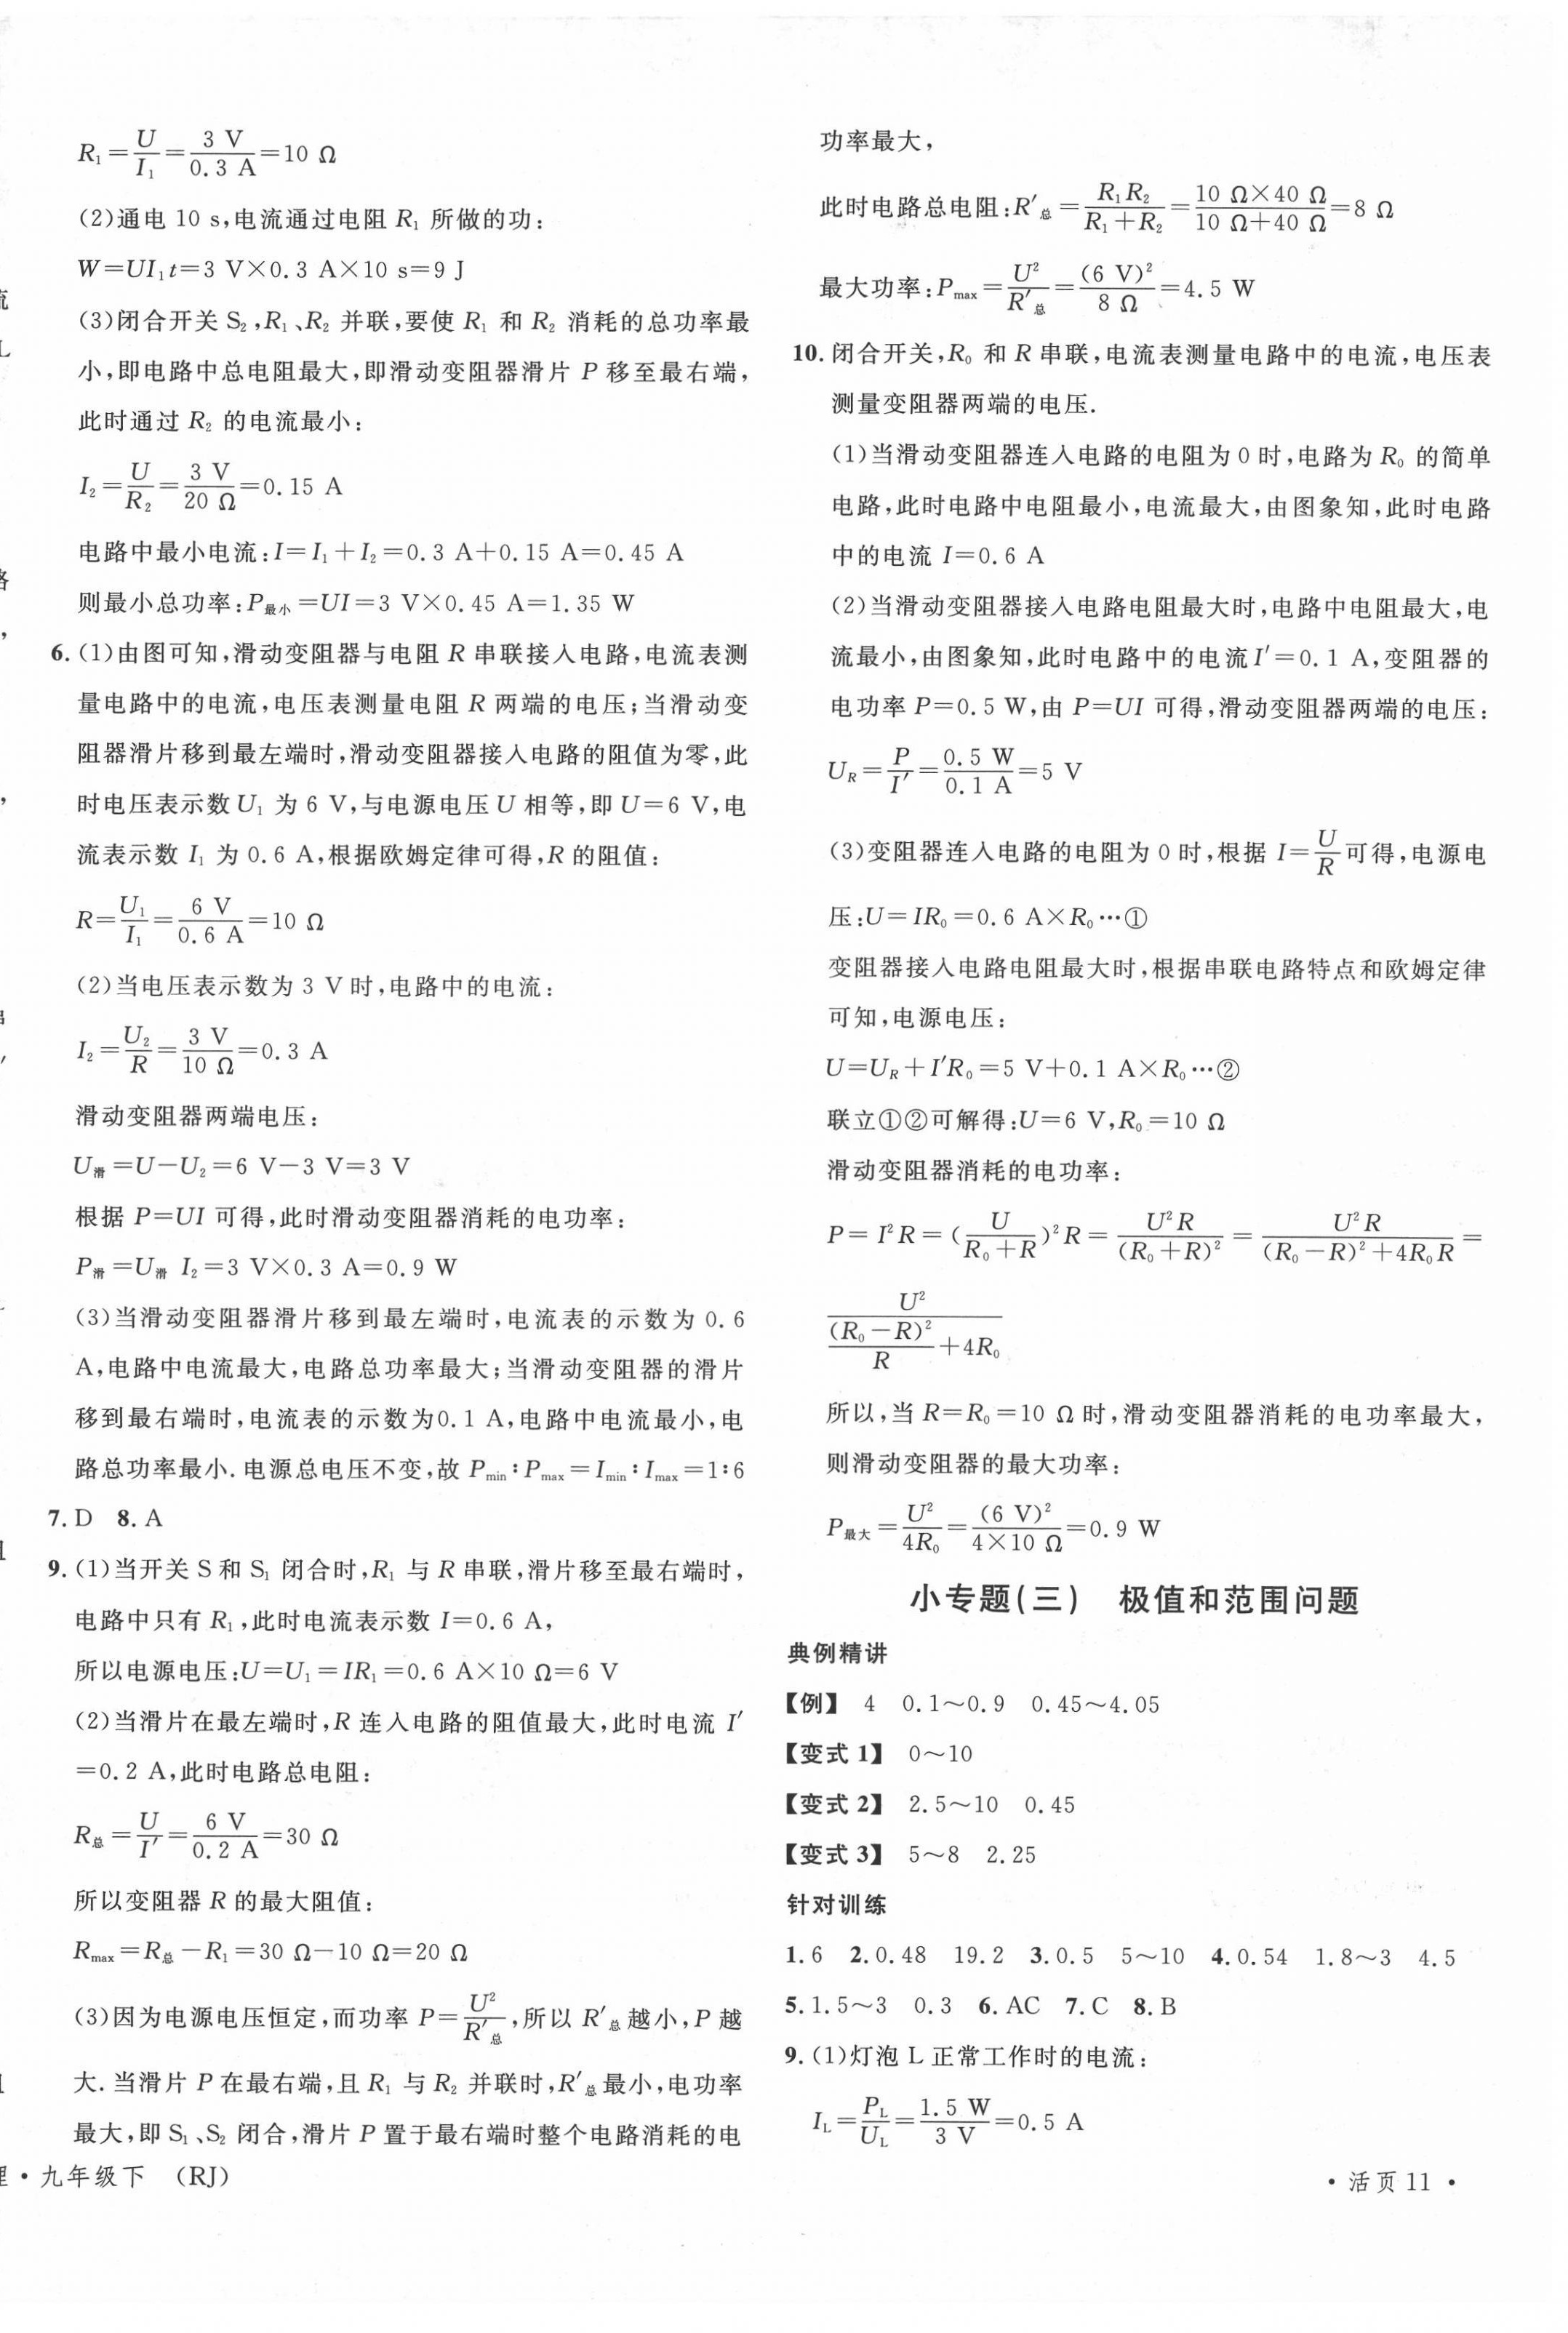 R₁=U/I₁=3 V/0.3 A=10 Ω
(2)通电 10 s,电流通过电阻 R₁ 所做的功:
W=UI₁t=3 V×0.3 A×10 s=9 J
(3)闭合开关 S₂,R₁、R₂ 并联,要使 R₁ 和 R₂ 消耗的总功率最
小,即电路中总电阻最大,即滑动变阻器滑片 P 移至最右端,
此时通过 R₂ 的电流最小:
I₂=U/R₂=3 V/20 Ω=0.15 A
电路中最小电流:I=I₁+I₂=0.3 A+0.15 A=0.45 A
则最小总功率:P最小=UI=3 V×0.45 A=1.35 W
6.(1)由图可知,滑动变阻器与电阻 R 串联接入电路,电流表测
量电路中的电流,电压表测量电阻 R 两端的电压;当滑动变
阻器滑片移到最左端时,滑动变阻器接入电路的阻值为零,此
时电压表示数 U₁ 为 6 V,与电源电压 U 相等,即 U=6 V,电
流表示数 I₁ 为 0.6 A,根据欧姆定律可得,R 的阻值:
R=U₁/I₁=6 V/0.6 A=10 Ω
(2)当电压表示数为 3 V 时,电路中的电流:
I₂=U₂/R=3 V/10 Ω=0.3 A
滑动变阻器两端电压:
U滑=U-U₂=6 V-3 V=3 V
根据 P=UI 可得,此时滑动变阻器消耗的电功率:
P滑=U滑 I₂=3 V×0.3 A=0.9 W
(3)当滑动变阻器滑片移到最左端时,电流表的示数为 0.6
A,电路中电流最大,电路总功率最大;当滑动变阻器的滑片
移到最右端时,电流表的示数为0.1 A,电路中电流最小,电
路总功率最小.电源总电压不变,故 Pmin∶Pmax=Imin∶Imax=1∶6
7.D 8.A
9.(1)当开关 S 和 S₁ 闭合时,R₁ 与 R 串联,滑片移至最右端时,
电路中只有 R₁,此时电流表示数 I=0.6 A,
所以电源电压:U=U₁=IR₁=0.6 A×10 Ω=6 V
(2)当滑片在最左端时,R 连入电路的阻值最大,此时电流 I′
=0.2 A,此时电路总电阻:
R总=U/I′=6 V/0.2 A=30 Ω
所以变阻器 R 的最大阻值:
Rmax=R总-R₁=30 Ω-10 Ω=20 Ω
(3)因为电源电压恒定,而功率 P=U²/R′总,所以 R′总越小,P 越
大.当滑片 P 在最右端,且 R₁ 与 R₂ 并联时,R′总最小,电功率
最大,即 S₁、S₂ 闭合,滑片 P 置于最右端时整个电路消耗的电
理·九年级下 (RJ)
功率最大,
此时电路总电阻:R′总=R₁R₂/(R₁+R₂)=(10 Ω×40 Ω)/(10 Ω+40 Ω)=8 Ω
最大功率:Pmax=U²/R′总=(6 V)²/8 Ω=4.5 W
10.闭合开关,R₀ 和 R 串联,电流表测量电路中的电流,电压表
测量变阻器两端的电压.
(1)当滑动变阻器连入电路的电阻为 0 时,电路为 R₀ 的简单
电路,此时电路中电阻最小,电流最大,由图象知,此时电路
中的电流 I=0.6 A
(2)当滑动变阻器接入电路电阻最大时,电路中电阻最大,电
流最小,由图象知,此时电路中的电流I′=0.1 A,变阻器的
电功率 P=0.5 W,由 P=UI 可得,滑动变阻器两端的电压:
U_R=P/I′=0.5 W/0.1 A=5 V
(3)变阻器连入电路的电阻为 0 时,根据 I=U/R可得,电源电
压:U=IR₀=0.6 A×R₀…①
变阻器接入电路电阻最大时,根据串联电路特点和欧姆定律
可知,电源电压:
U=U_R+I′R₀=5 V+0.1 A×R₀…②
联立①②可解得:U=6 V,R₀=10 Ω
滑动变阻器消耗的电功率:
P=I²R=(U/(R₀+R))²R=U²R/(R₀+R)²=U²R/((R₀-R)²+4R₀R)=
U²/((R₀-R)²/R+4R₀)
所以,当 R=R₀=10 Ω 时,滑动变阻器消耗的电功率最大,
则滑动变阻器的最大功率:
P最大=U²/4R₀=(6 V)²/(4×10 Ω)=0.9 W
小专题(三) 极值和范围问题
典例精讲
【例】 4 0.1~0.9 0.45~4.05
【变式 1】 0~10
【变式 2】 2.5~10 0.45
【变式 3】 5~8 2.25
针对训练
1.6 2.0.48 19.2 3.0.5 5~10 4.0.54 1.8~3 4.5
5.1.5~3 0.3 6.AC 7.C 8.B
9.(1)灯泡 L 正常工作时的电流:
I_L=P_L/U_L=1.5 W/3 V=0.5 A
·活页 11·